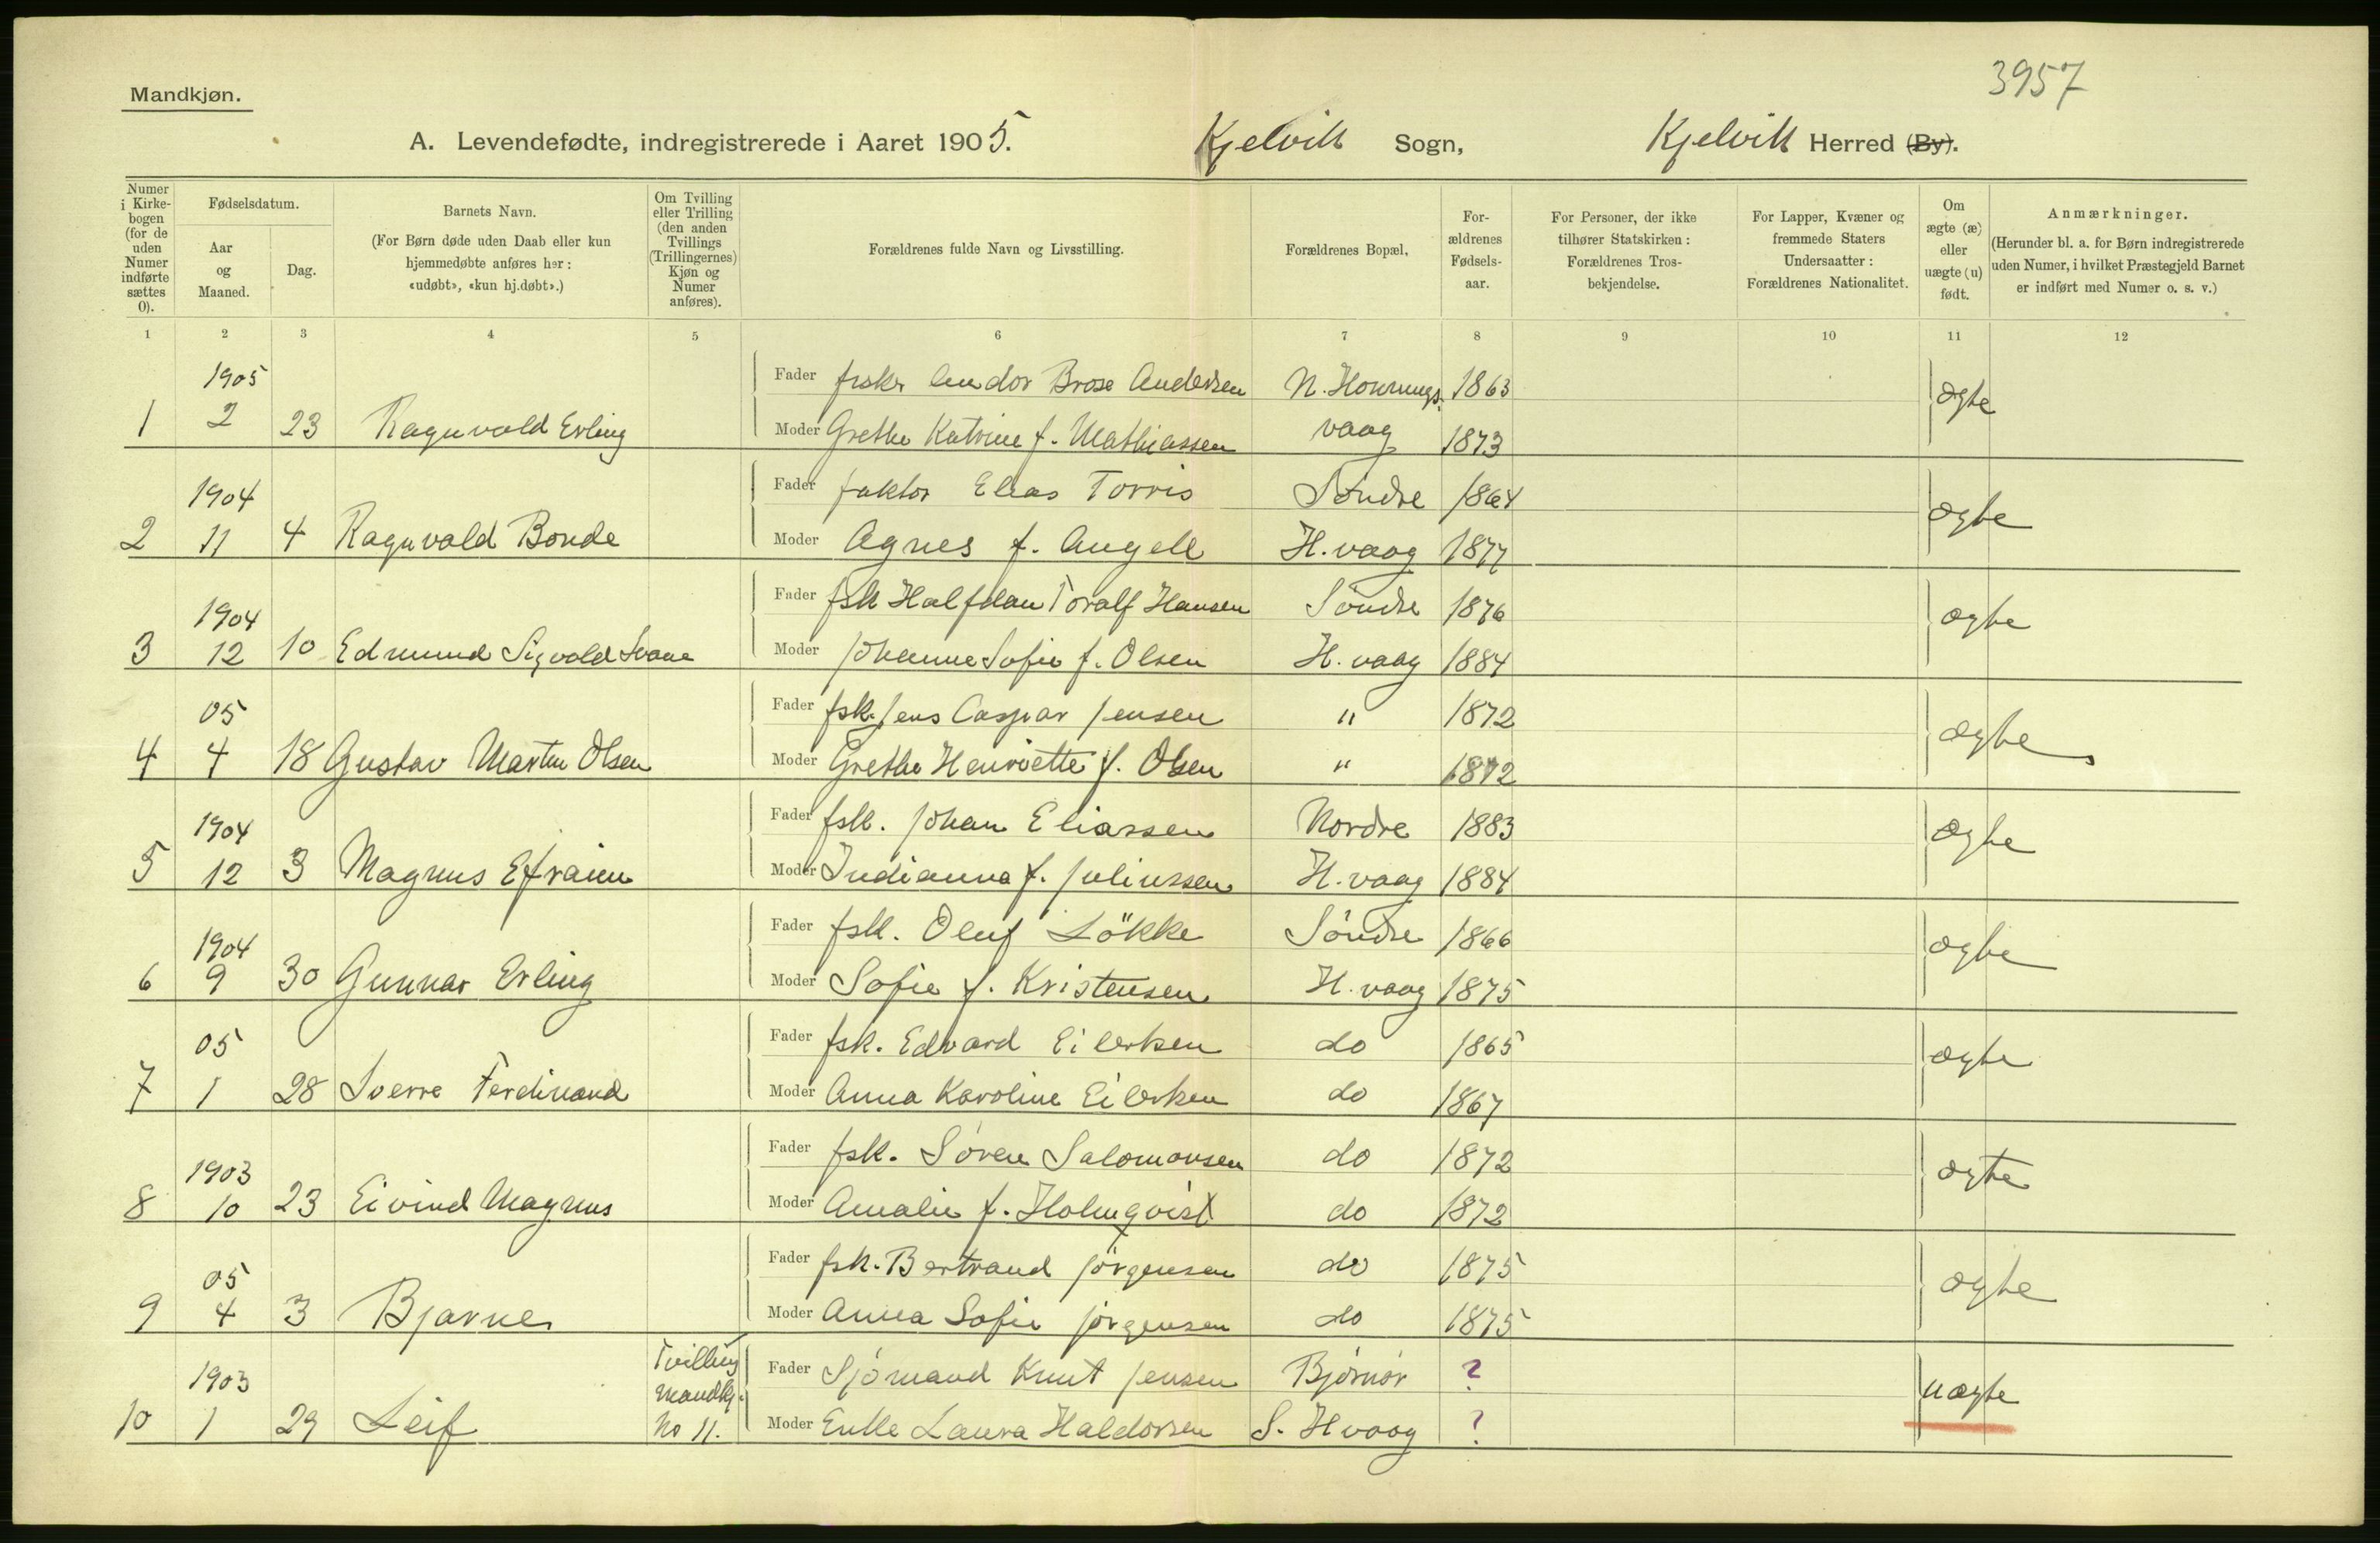 3957
Mandkjøn.
A. Levendefødte, indregistrerede i Aaret 1905. Kjelvik Sogn, Kjelvik Herred (By).
Numer i Kirke-bogen (for de uden Numer indførte sættes 0).
Fødselsdatum.
Aar og Maaned.
Dag.
Barnets Navn.
(For Børn døde uden Daab eller kun hjemmedøbte anføres her: «udøbt», «kun hj.døbt».)
Om Tvilling eller Trilling (den anden Tvillings (Trillingernes) Kjøn og Numer anføres).
Forældrenes fulde Navn og Livsstilling.
Forældrenes Bopæl,
For-ældrenes Fødsels-aar.
For Personer, der ikke tilhører Statskirken: Forældrenes Tros-bekjendelse.
For Lapper, Kvæner og fremmede Staters Undersaatter: Forældrenes Nationalitet.
Om ægte (æ) eller uægte (u) født.
Anmærkninger.
(Herunder bl. a. for Børn indregistrerede uden Numer, i hvilket Præstegjeld Barnet er indført med Numer o. s. v.)
1 2 3 4 5 6 7 8 9 10 11 12
1905 Fader fisker Andor Brose Andersen N. Honnings 1863 ægte
1 2 23 Ragnvald Erling Moder Grethe Katrine f. Mathiassen vaag 1873
1904 Fader faktor Elias Torris Søndre 1864 ægte
2 11 4 Ragnvald Bonde Moder Agnes f. Angell H. vaag 1877
1904 Fader fsk Halfdan Toralf Hansen Søndre 1876 ægte
3 12 10 Edmund Sigvald Svane Moder Johanne Sofie f. Olsen H. vaag 1884
05 Fader fsk. Jens Caspar Jensen " 1872 ægte
4 4 18 Gustav Martin Olsen Moder Grethe Henriette f. Olsen " 1872
1904 Fader fsk. Johan Eliassen Nordre 1883 ægte
5 12 3 Magnus Efraim Moder Indianna f. Juliussen H. vaag 1884
1904 Fader fsk. Oluf Lökke Søndre 1866 ægte
6 9 30 Gunnar Erling Moder Sofie f. Kristensen H. vaag 1875
05 Fader fsk. Edvard Eilertsen do 1865 ægte
7 1 28 Sverre Ferdinand Moder Anna Karoline Eilertsen do 1867
1903 Fader fsk. Søren Salomonsen do 1872 ægte
8 10 23 Eivind Magnus Moder Amalie f. Holmqvist do 1872
05 Fader fsk. Bertrand Jørgensen do 1875 ægte
9 4 3 Bjarne Moder Anna Sofie Jørgensen do 1875
1903 Tvilling mandkj. Fader Sjømand Knut Jensen Bjørnør ? uægte
10 1 29 Leif No 11. Moder Enke Laura Haldorsen S. Hvaag ?